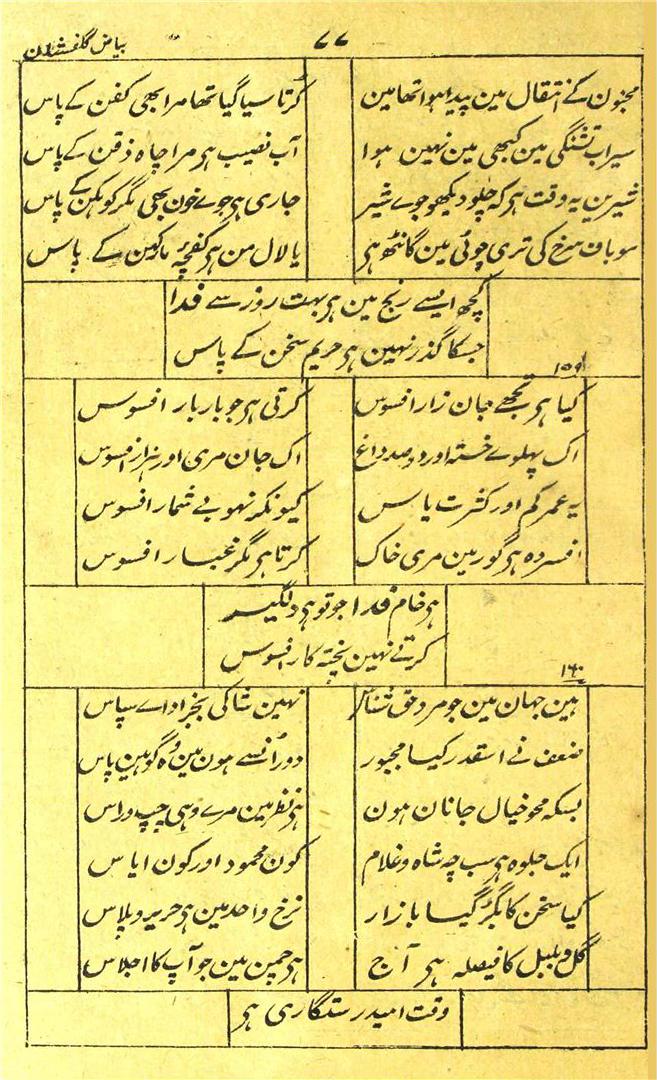 بیاض گلفشان
۷۷
مجنون کے انتقال مین پیدا ہوا تھا مین کُرتا سیا گیا تھا مرا بھی کفن کے پاس
سیراب تشنگی مین کبھی مین نہین ہوا آب نصیب ہر مرا چاہ ذقن کے پاس
شیرین یہ وقت ہر کہ چلو دیکھو جوے شیر جاری ہر جوے خون بھی مگر کوہکن کے پاس
موباف سرخ کی تری چوٹی مین گانٹھ ہر یا لال من ہر کفچۂ مار کہن کے پاس
کچھ ایسے رنج مین ہر بہت روز سے فدا
جسکا گذر نہین ہر حریم سخن کے پاس
۱۵۹
کیا ہر تجھے جان زار افسوس کرتی ہر جو بار بار افسوس
اک پہلوے خستہ اور دو صد داغ اک جان مری اور ہزار افسوس
یہ عمر کم اور کثرت یاس کیونکر نہو بے شمار افسوس
افسردہ ہر گور مین مری خاک کرتا ہر مگر غبار افسوس
ہر خام فدا جو تو ہر دلگیر
کرتے نہین پختہ کار افسوس
۱۶۰
ہین جہان مین جو مرد حق شناس نہین شاکی بجز اداے سپاس
ضعف نے اسقدر کیا مجبور دور اُنسے ہون مین وہ گو ہین پاس
بسکہ محو خیال جانان ہون ہر نظر مین مرے وہی چپ و راس
ایک جلوہ ہر سب چہ شاہ و غلام کون محمود اور کون ایاس
کیا سخن کا بگڑ گیا بازار نرخ واحد مین ہر حریر و پلاس
گل و بلبل کا فیصلہ ہر آج ہر چمن مین جو آپ کا اجلاس
وقت امید رستگاری ہر